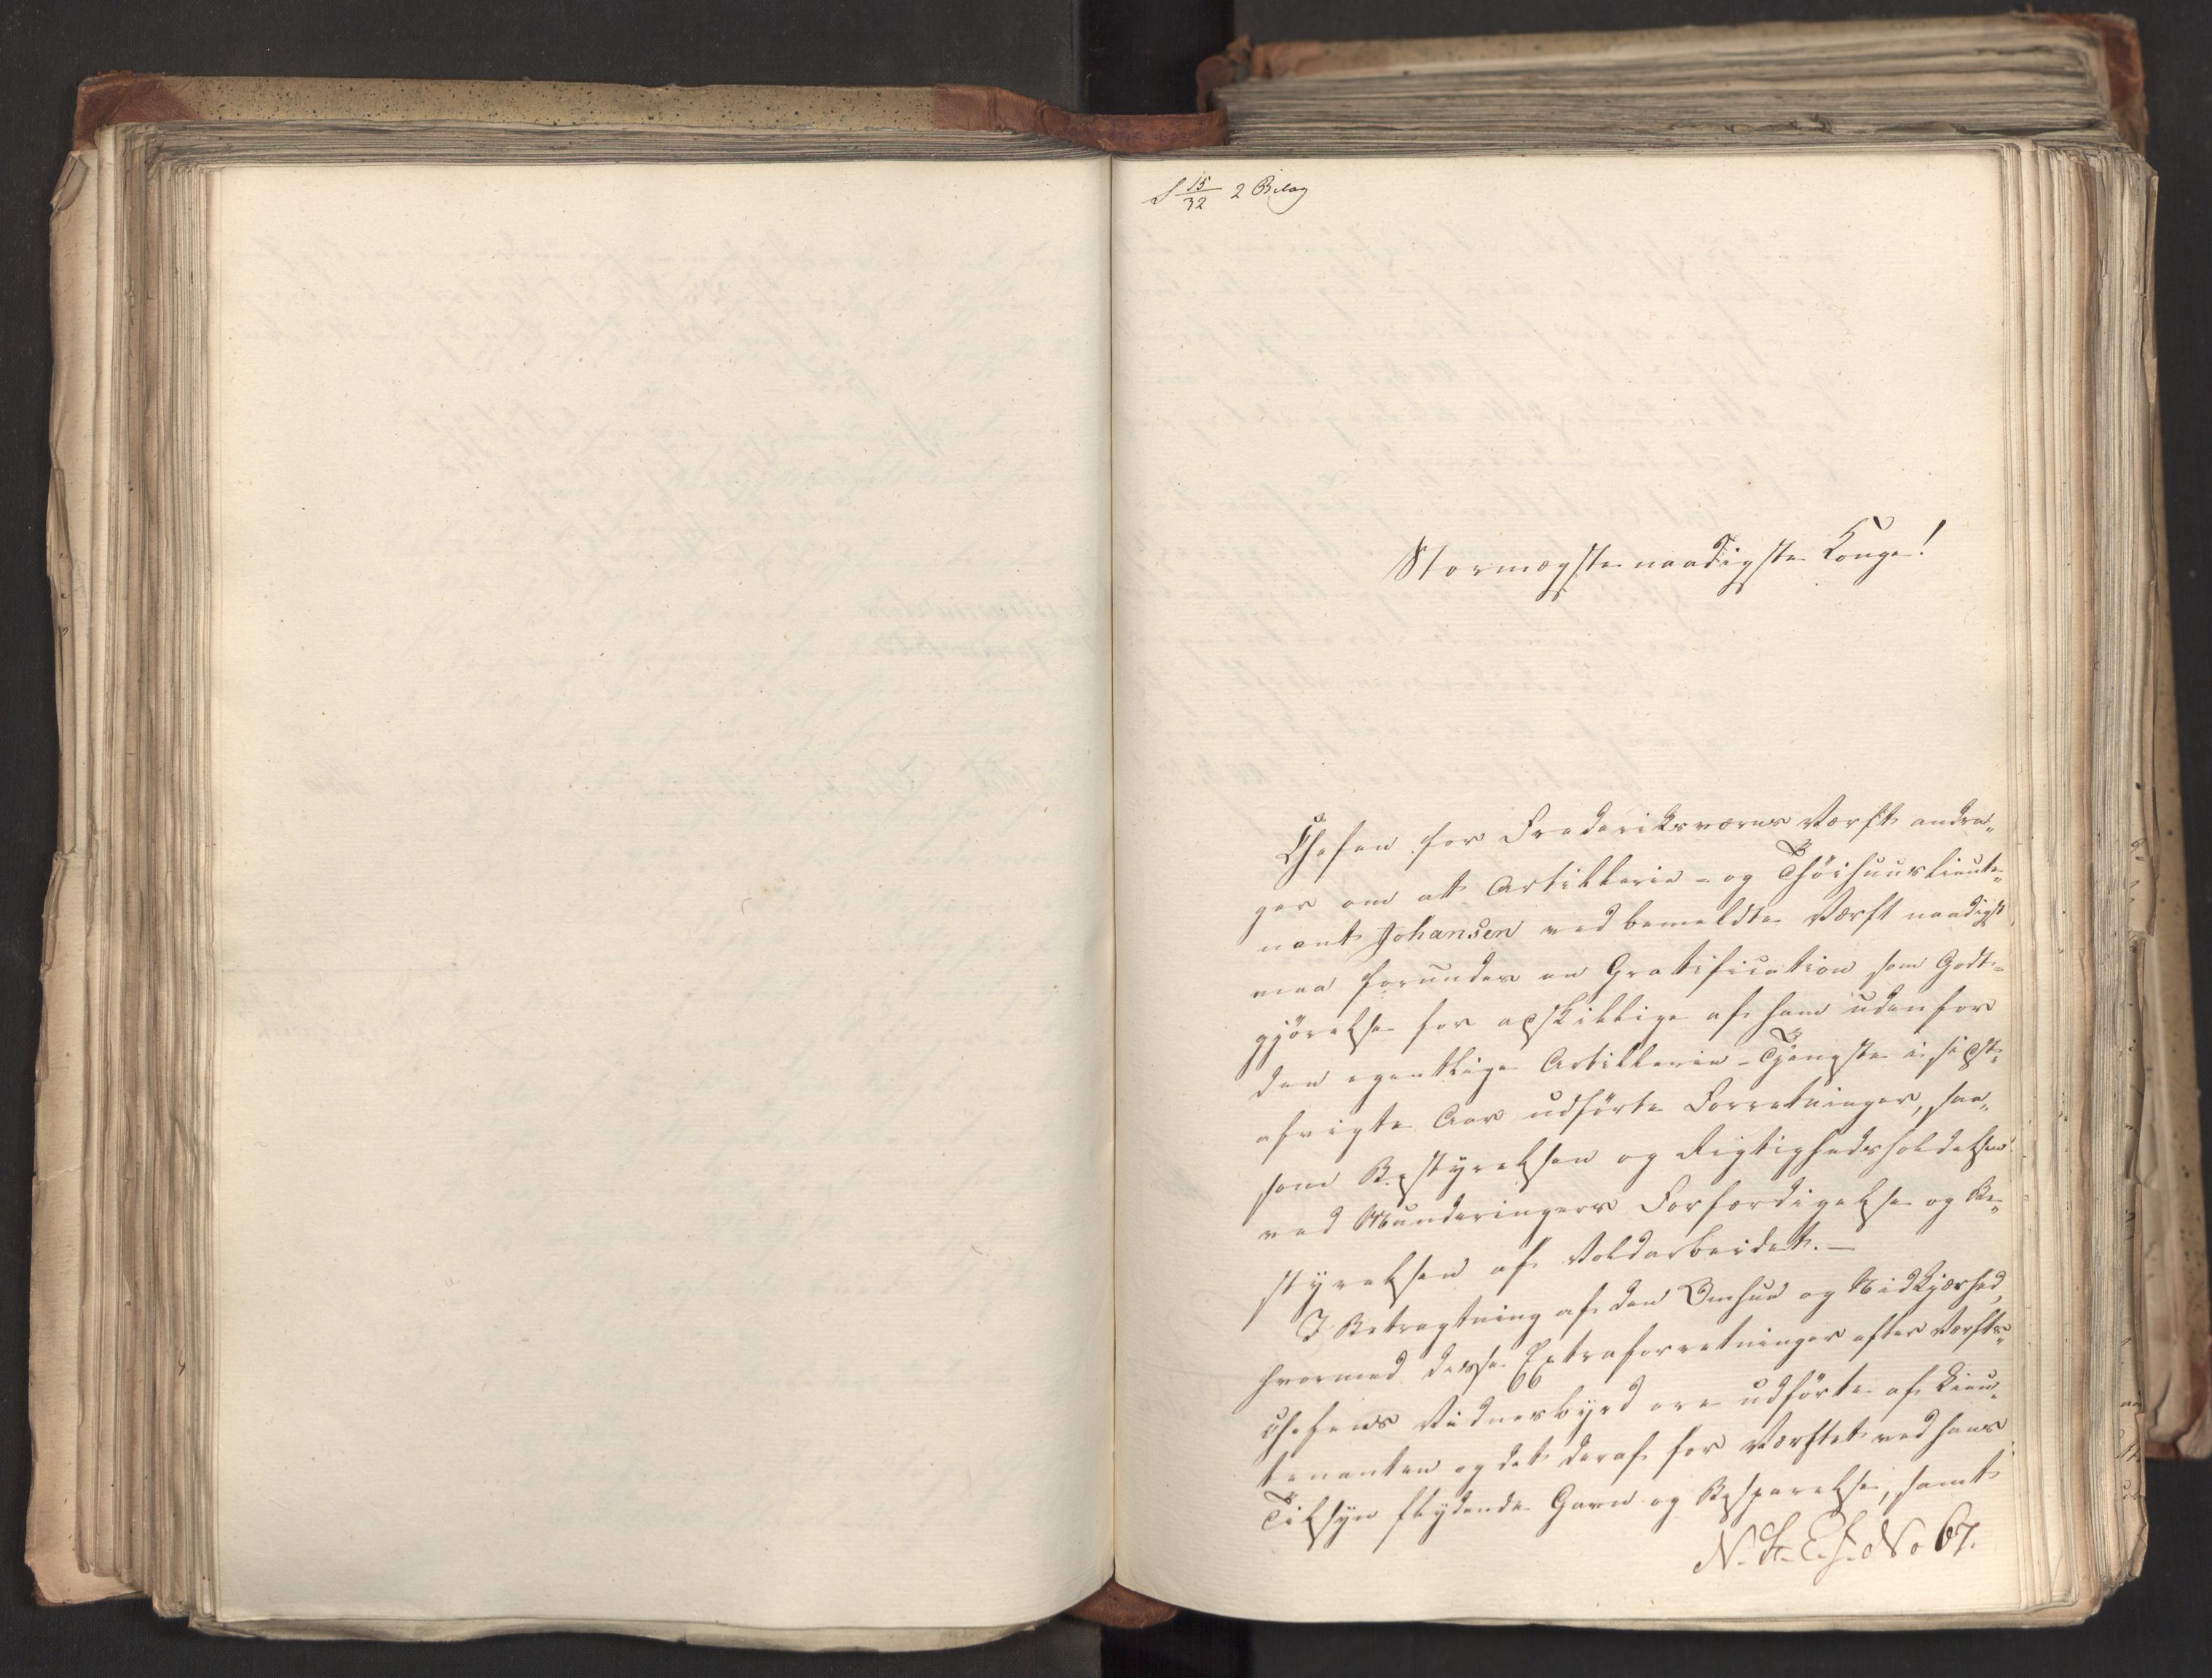 15/32 2 Bilag
Stormægtigste naadigste Konge!
Chefen for Frederiksværns Værft andra„
ger om at Artillerie- og Thöihuuslieute„
nant Johansen ved bemeldte Værft naadigst
maa forundes en Gratification som Godt„
gjörelse for adskillige af ham udenfor
den egentlige Artillerie-Tjeneste i sidst„
afvigte Aar udförte Forretninger, saa„
som Bestyrelsen og Rigtighedsholdelsen
ved Munderingers Forfærdigelse og Be„
styrelsen af Voldarbeidet. —
I Betragtning af den Omhue og Nidkjærhed,
hvormed disse Extraforretninger efter Værfts„
Chefens Vidnesbyrd ere udförte af Lieu„
tenanten og det deraf for Værftet ved hans
Tilsyn flydende Gavn og Besparelse, samt
N. St. E. f. No 67.